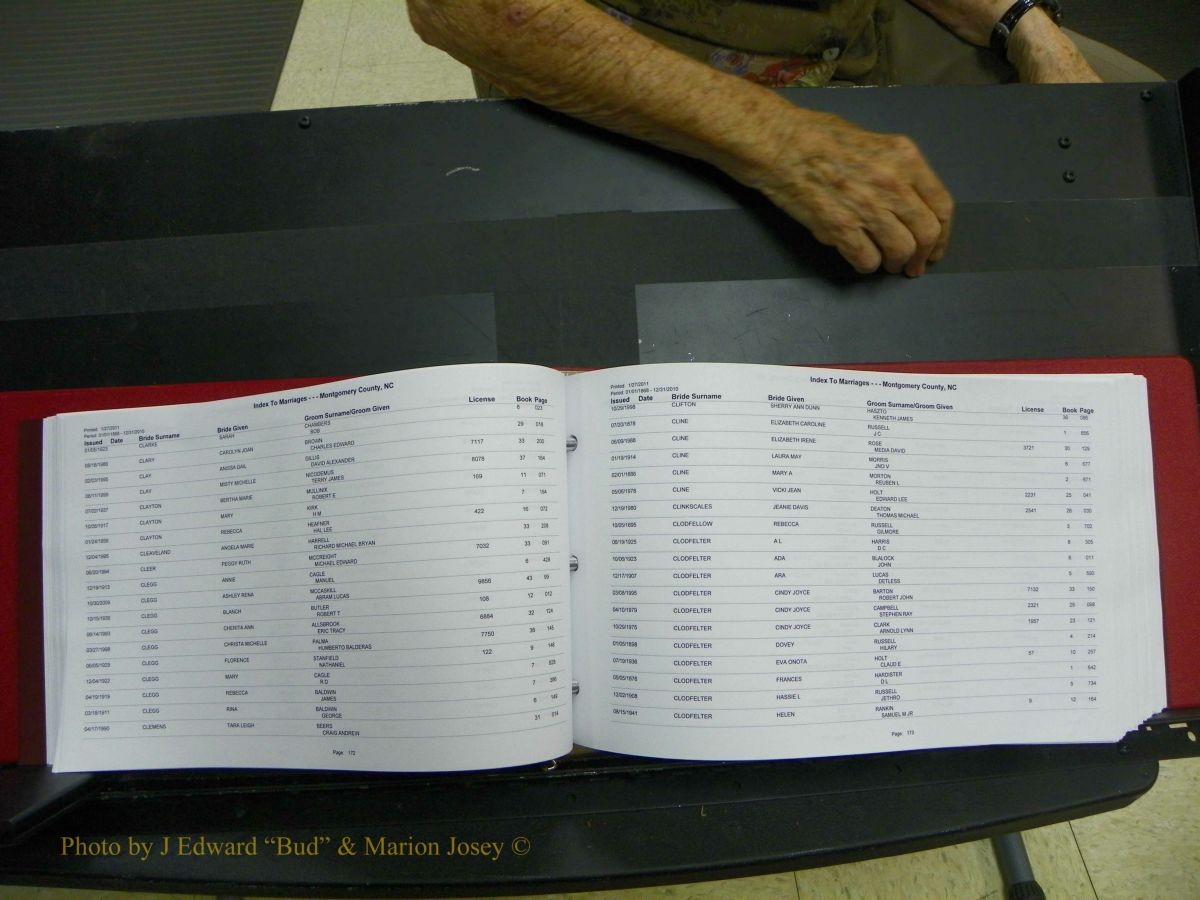 Index To Marriages - - - Montgomery County, NC
Printed 1/27/2011
Period 01/01/1868 - 12/31/2010
Issued Date Bride Surname Bride Given Groom Surname/Groom Given License Book Page
CLARKE SARAH CHAMBERS 6 023
BOB
CLARY CAROLYN JOAN BROWN 29 018
CHARLES EDWARD
CLAY ANISSA GAIL GILLIS 7117 33 200
DAVID ALEXANDER
CLAY MISTY MICHELLE NICODEMUS 6078 37 184
TERRY JAMES
CLAYTON BERTHA MARIE MULLINIX 169 11 071
ROBERT E
CLAYTON MARY KIRK 7 184
H M
CLAYTON REBECCA HEAFNER 422 16 072
HAL LEE
CLEAVELAND ANGELA MARIE HARRELL 33 208
RICHARD MICHAEL BRYAN
CLEER PEGGY RUTH MCCREIGHT 7032 33 091
MICHAEL EDWARD
CLEGG ANNIE CAGLE 6 428
MANUEL
CLEGG ASHLEY RENA MCCASKILL 9856 43 99
ABRAM LUCAS
CLEGG BLANCH BUTLER 108 12 012
ROBERT T
CLEGG CHERITA ANN ALLSBROOK 6864 32 124
ERIC TRACY
CLEGG CHRISTA MICHELLE PALMA 7750 36 145
HUMBERTO BALDERAS
CLEGG FLORENCE STANFIELD 122 9 148
NATHANIEL
CLEGG MARY CAGLE 7
R D
CLEGG REBECCA BALDWIN 7
JAMES
03/18/1911 CLEGG RINA BALDWIN 6 149
GEORGE
04/17/1990 CLEMENS TARA LEIGH BEERS 31 014
CRAIG ANDREIN
Page: 172
Index To Marriages - - - Montgomery County, NC
Printed 1/27/2011
Period 01/01/1868 - 12/31/2010
Issued Date Bride Surname Bride Given Groom Surname/Groom Given License Book Page
10/29/1998 CLIFTON SHERRY ANN DUNN HASZTO 36 086
KENNETH JAMES
07/20/1878 CLINE ELIZABETH CAROLINE RUSSELL 1 656
J C
06/09/1988 CLINE ELIZABETH IRENE ROSE 3721 30 129
MEDIA DAVID
01/19/1914 CLINE LAURA MAY MORRIS 6 677
JNO V
02/01/1886 CLINE MARY A MORTON 2 671
REUBEN L
05/06/1978 CLINE VICKI JEAN HOLT 2231 25 041
EDWARD LEE
12/19/1980 CLINKSCALES JEANIE DAVIS DEATON 2541 26 030
THOMAS MICHAEL
10/05/1895 CLODFELLOW REBECCA RUSSELL 3 702
GILMORE
08/19/1925 CLODFELTER A L HARRIS 8 305
D C
10/06/1923 CLODFELTER ADA BLALOCK 8 011
JOHN
12/17/1907 CLODFELTER ARA LUCAS 5 593
DETLESS
03/08/1995 CLODFELTER CINDY JOYCE BARTON 7132 33 150
ROBERT JOHN
04/10/1979 CLODFELTER CINDY JOYCE CAMPBELL 2321 25 098
STEPHEN RAY
10/29/1976 CLODFELTER CINDY JOYCE CLARK 1957 23 121
ARNOLD LYNN
01/05/1898 CLODFELTER DOVEY RUSSELL 4 214
HILARY
07/19/1936 CLODFELTER EVA ONOTA HOLT 57 10 257
CLAUD E
05/05/1876 CLODFELTER FRANCES HARDISTER 1 642
D L
12/02/1908 CLODFELTER HASSIE L RUSSELL 5 734
JETHRO
08/15/1941 CLODFELTER HELEN RANKIN 9 12 164
SAMUEL M JR
Page: 173
Photo by J Edward “Bud” & Marion Josey ©